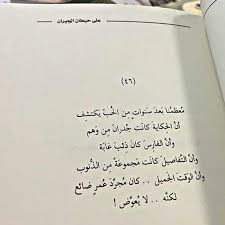 على حيطان الجيران
(٤٦)
مُعظمُنا بَعدَ سَنواتٍ مِن الحُبِّ يَكتشِف
أنّ الحِكايةَ كانَت جُدرانَ مِن وَهم
وأنّ الفَارسَ كانَ ذِئبَ غَابة
وأنّ التّفاصيلَ كانَت مَجموعَةً مِن الذُّنوب
وأنّ الوَقتَ الجَميل .. كانَ مُجرّدَ عُمرٍ ضائع
لكنّه .. لا يُعوّض !